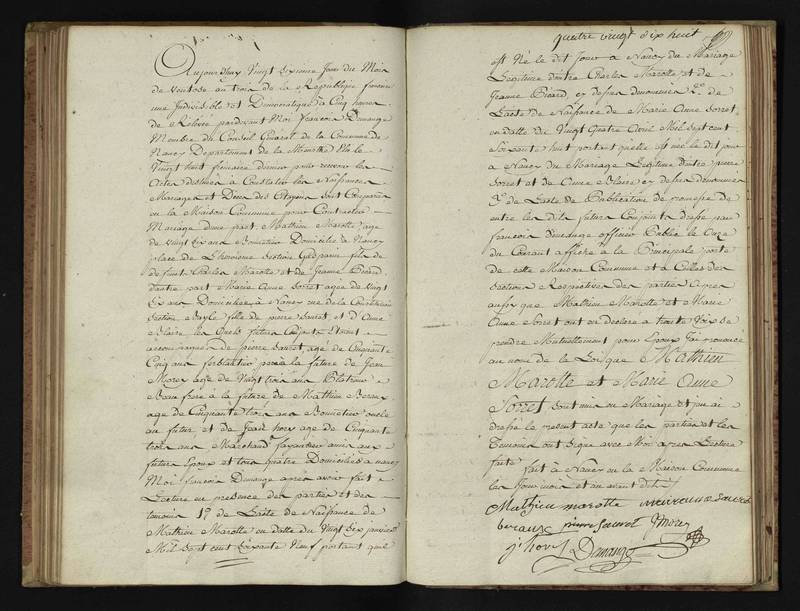 Aujourdhuy Vingt Sixieme Jour du Mois
de Ventose au trois de la Republique francoise
une Indivisible et Democratique a Cinq heures
de Relevée pardevant Moi Francois Démange
Membre du Conseil General de la Commune de
Nancy Departement de la Meurthe Elu le
Vingt huit frimaire dernier pour recevoir les
Actes destinés a Constater les Naissances
Mariages et Décès des Citoyens sont Comparus
en la Maison Commune pour Contracter
Mariage d'une part Mathieu Marotte agé
de vingt six ans Bonnetier Domicilié a Nancy
place de Section fils de
de feu Charles Marotte et de Jeanne Picard
d'autre part Marie Anne Sorret agée de vingt
Six ans Domiciliée a Nancy rue de la
Section Bayle fille de pierre Sauret, et d'Anne
Blaire les Quels futurs Conjoints Etoient
accompagnés de pierre Sauret, agé de Cinquante
Cinq ans ferblantier pere a la future de Jean
Morey agé de Vingt trois ans Platrier
Beau frere a la future de Mathieu Beraux
agé de Cinquante trois ans Bonnetier oncle
au futur et de agé de Cinquante
trois ans Marchand fayancier amis aux
futurs Epoux et tous quatre Domiciliés a nancy
Moi François Démange après avoir fait
Lecture en presence des parties et des
temoins 1° de L'acte de Naissance de
Mathieu Marotte en datte du Vingt Six janvier
Mil Sept cent Soixante Neuf portant qu'il
quatre vingt dix huit
est Né le dit Jour a Nancy du Mariage
Legitime d'entre Charles Marotte et de
Jeanne Picard, cy dessus denommés 2° de
L'acte de Naissance de Marie Anne Sorret
en datte du Vingt Quatre Avril Mil Sept cent
Soixante huit portant qu'elle est née le dit jour
a Nancy du Mariage Legitime d'entre pierre
Sorret et de Anne Blaire cy dessus denommés
3° de L'acte de Publication de promesse
entre les dits futurs Conjoints dressé par
françois Démange officier Public le Onze
du Courant affiché a la Principale porte
de cette Maison Commune et a Celles des
Sections Respectives des parties Apres
aussi que Mathieu Marotte et Marie
Anne Sorret ont eu declaré a haute Voix se
prendre Mutuellement pour Epoux J'ai prononcé
au nom de la Loi que Mathieu
Marotte et Marie Anne
Sorret sont unis en Mariage et j'en ai
dressé le present acte que les parties et les
Temoins ont Signé avec Moi apres Lecture
faite
fait a Nancy en la Maison Commune
les Jour mois et an avant dits
Mathieu marotte
beraux pierre Sauret Morey
Demange